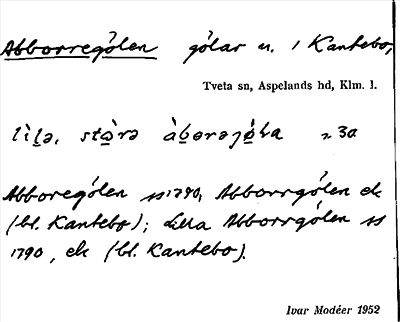 Abborregölen gölar n. i Kantebo,
Tveta sn, Aspelands hd, Klm. l.
lìl̠ə, stɷ̀rə àb̠ərəjø̀l̠a 230
Abboregölen ss 1790, Abborrgölen ek
(bl. Kantebo); Lilla Abborrgölen ss
1790, ek (bl. Kantebo).
Ivar Modéer 1952